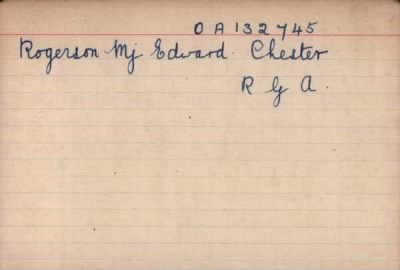 O A 132745
Rogerson Mj Edward. Chester
R G A.